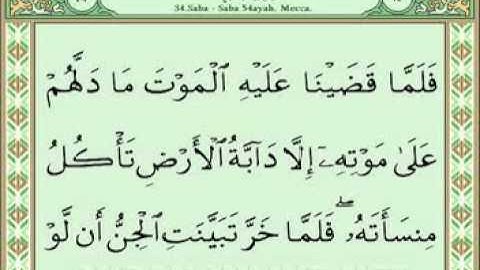 34.Saba - Saba 54ayah, Mecca.
فَلَمَّا قَضَيْنَا عَلَيْهِ ٱلْمَوْتَ مَا دَلَّهُمْ
عَلَىٰ مَوْتِهِۦٓ إِلَّا دَآبَّةُ ٱلْأَرْضِ تَأْكُلُ
مِنسَأَتَهُۥ ۖ فَلَمَّا خَرَّ تَبَيَّنَتِ ٱلْجِنُّ أَن لَّوْ